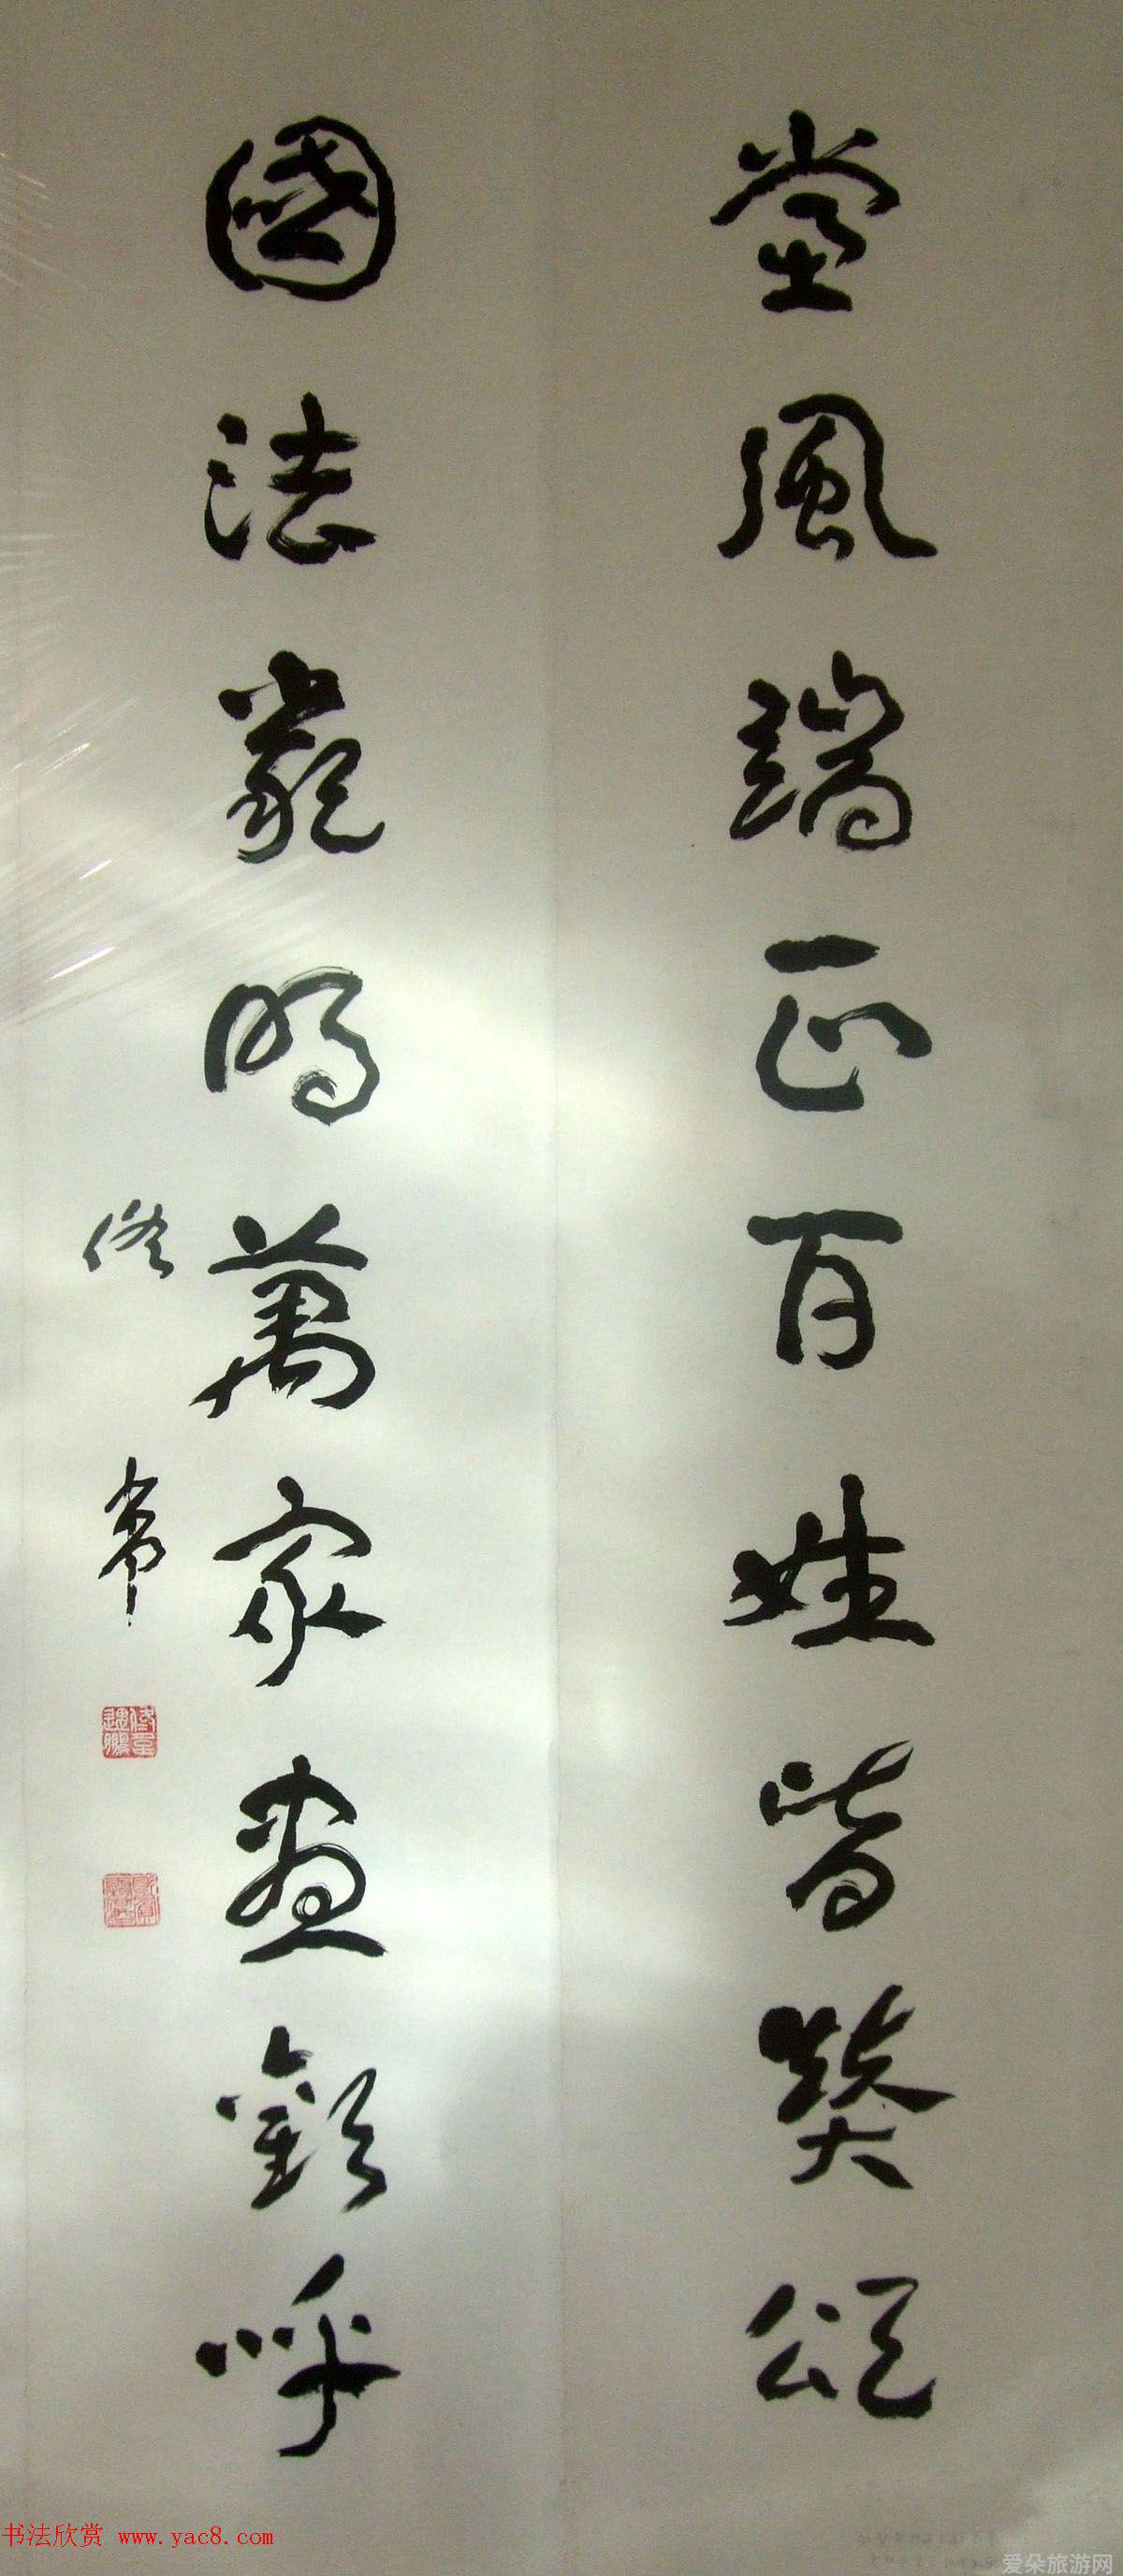 党風端正百姓皆奬頌
國法嚴明萬家盡歡呼
佟韋
书法欣赏 www.yac8.com
爱朵旅游网